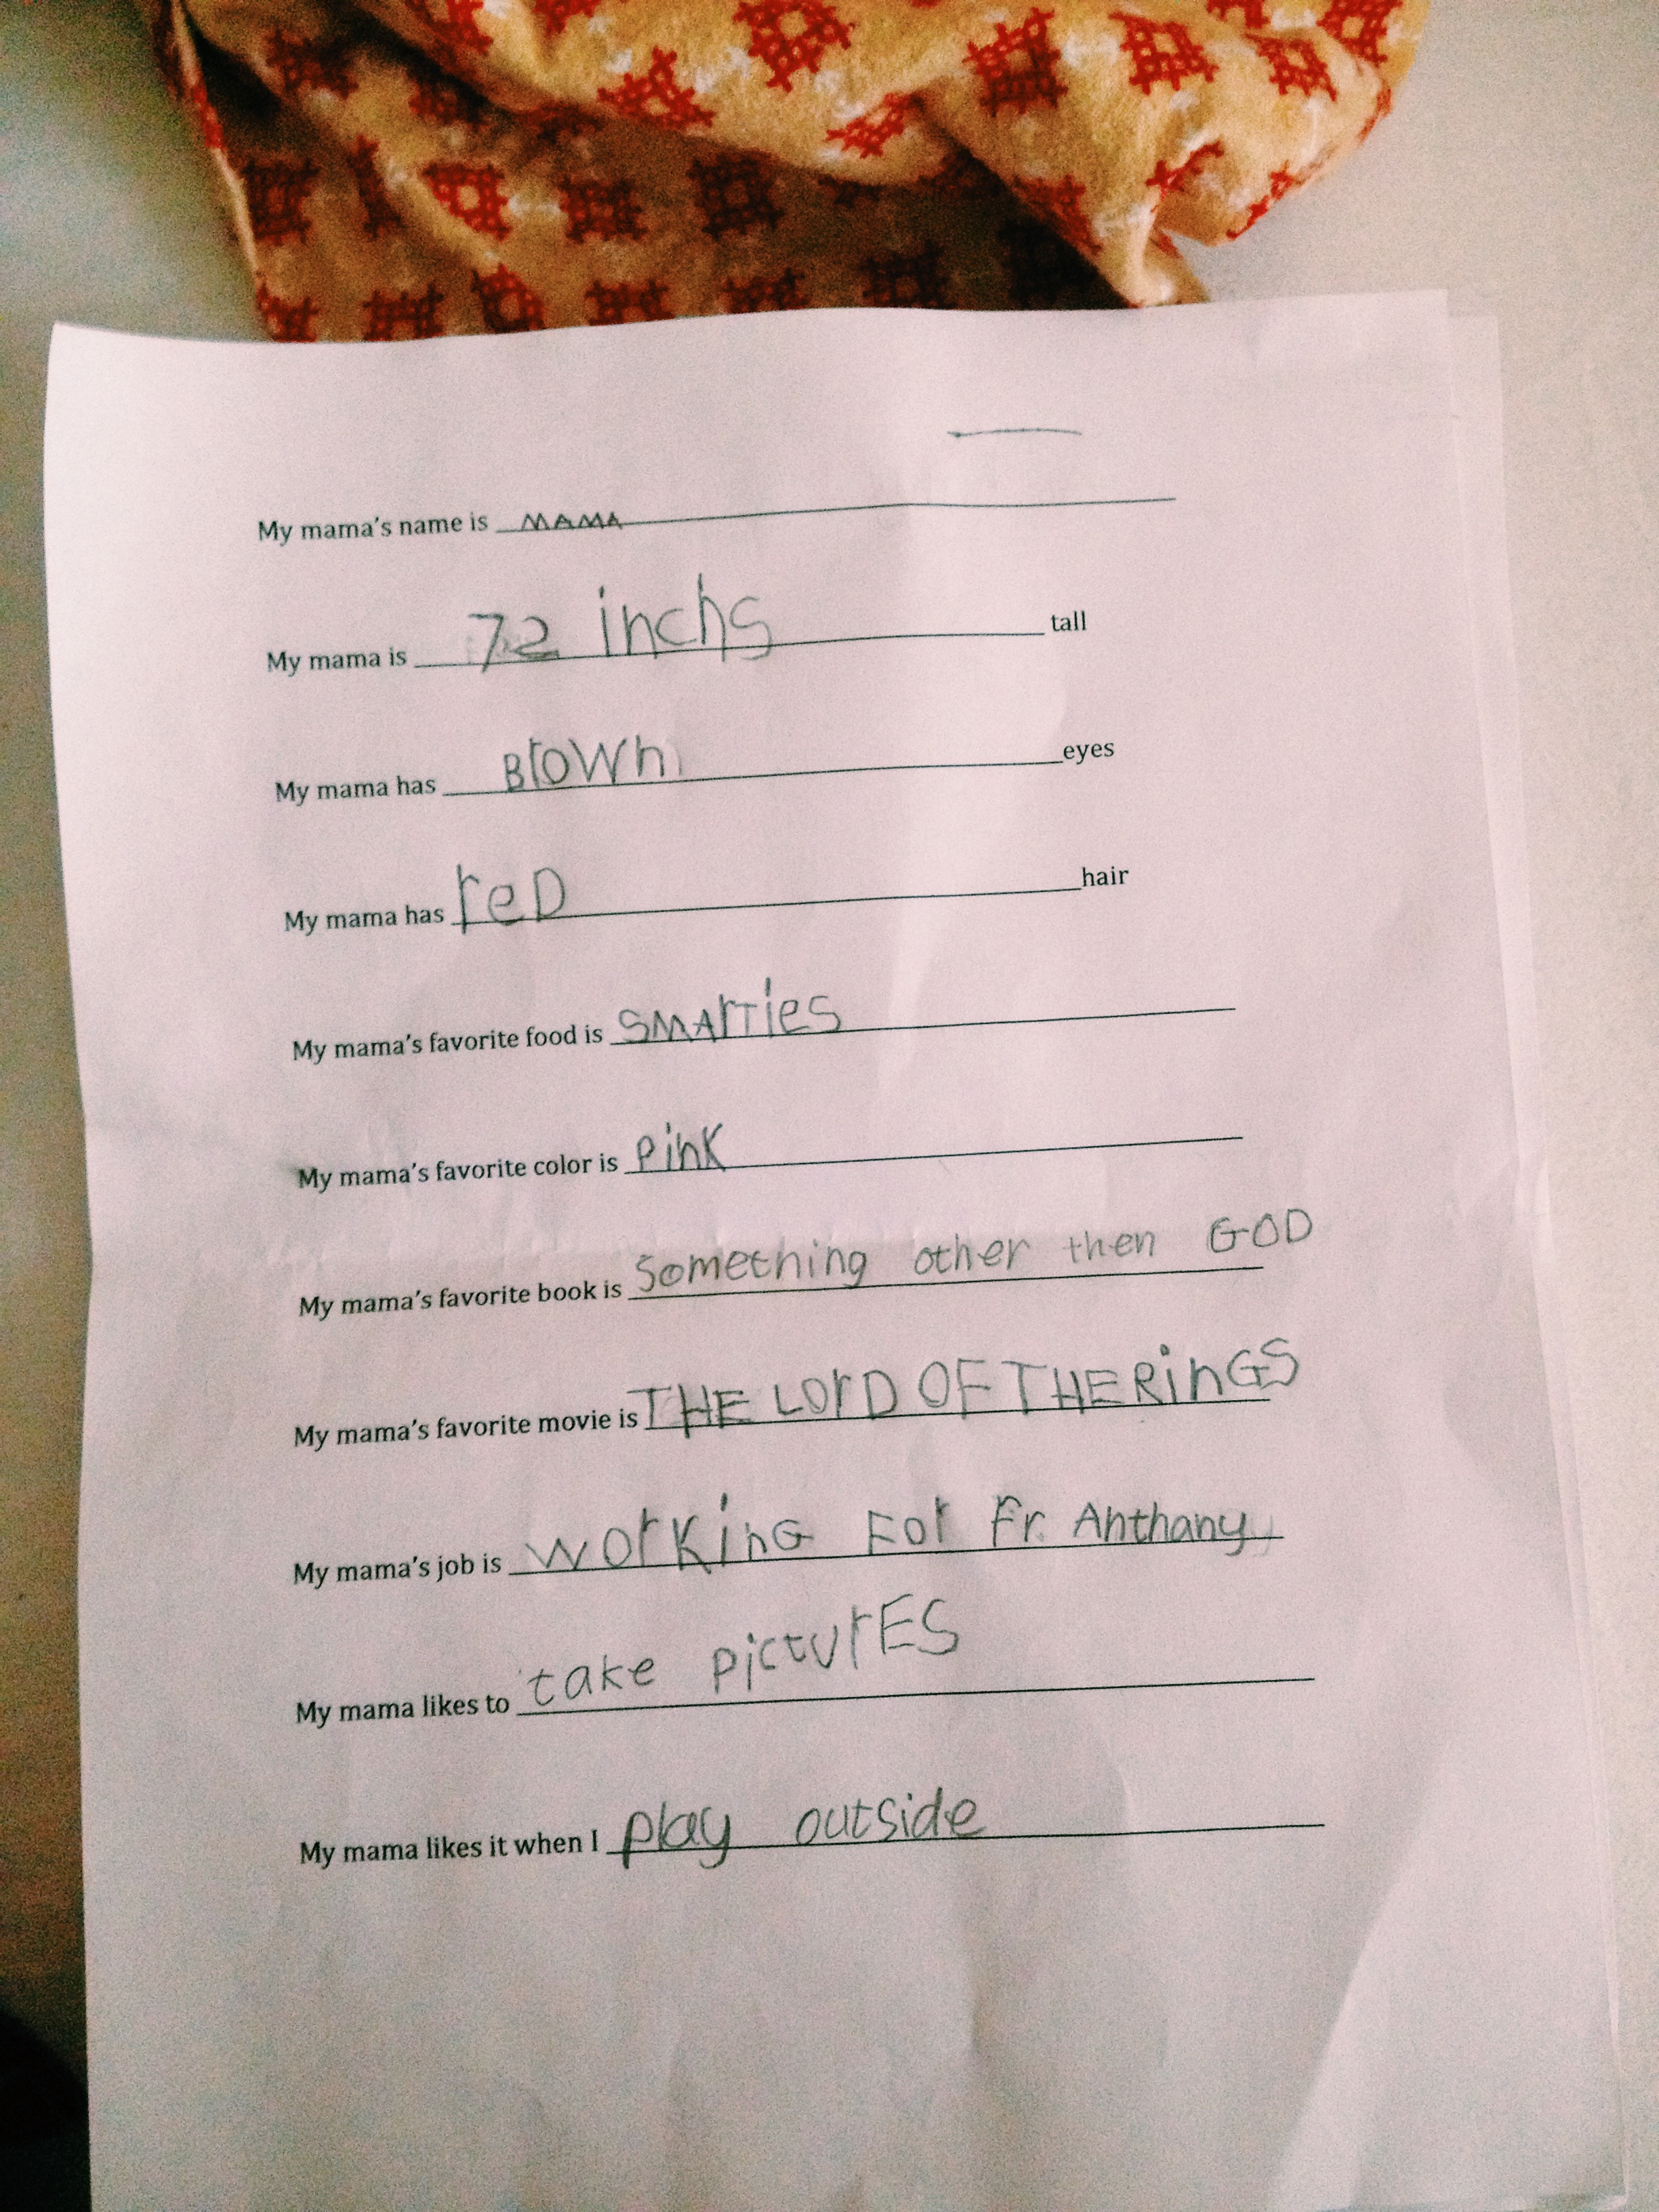 My mama's name is MAMA
My mama is 72 inchs tall
My mama has Brown eyes
My mama has reD hair
My mama's favorite food is SMArTies
My mama's favorite color is Pink
My mama's favorite book is Something other then GOD
My mama's favorite movie is THE LOrD OF THE RinGS
My mama's job isworKinG For Fr. Anthany
My mama likes to take picturES
My mama likes it when I play outside